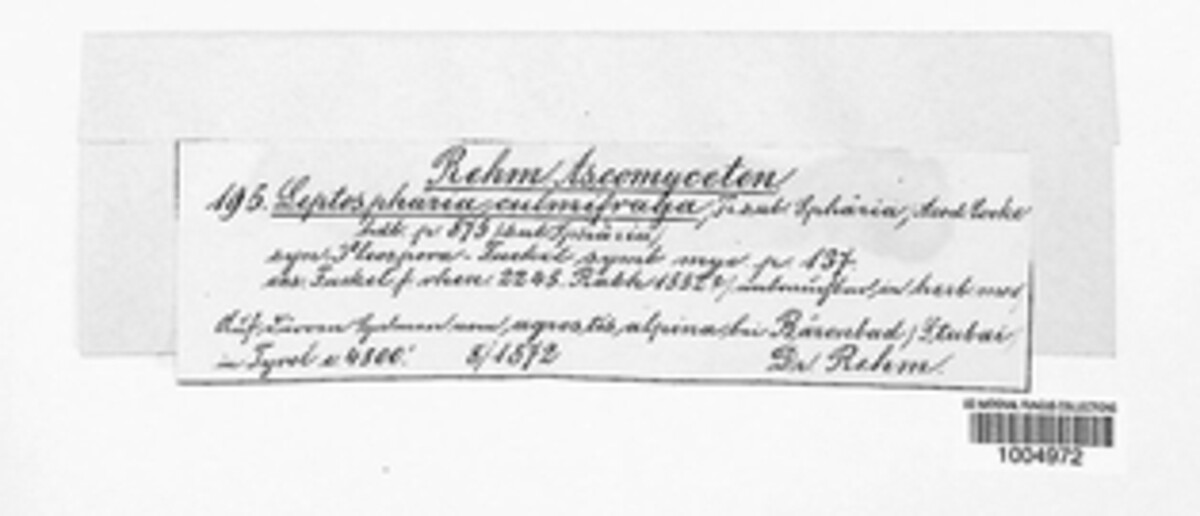 Rehm Ascomyceten
195. Leptosphäria culmifraga, Fr. sub Sphäria, Cooke
p 573 sub Sphäria,
syn. Pleospora. Fuckel symb myc p 137.
exs. Fuckel f. rhen 2245. Rabh 1552 in herb meo
Auf dürren agrostis alpina bei Bärenbad / Stubai
in Tyrol c 4800.' 8/1872 Dr Rehm.
US NATIONAL FUNGUS COLLECTIONS
1004972